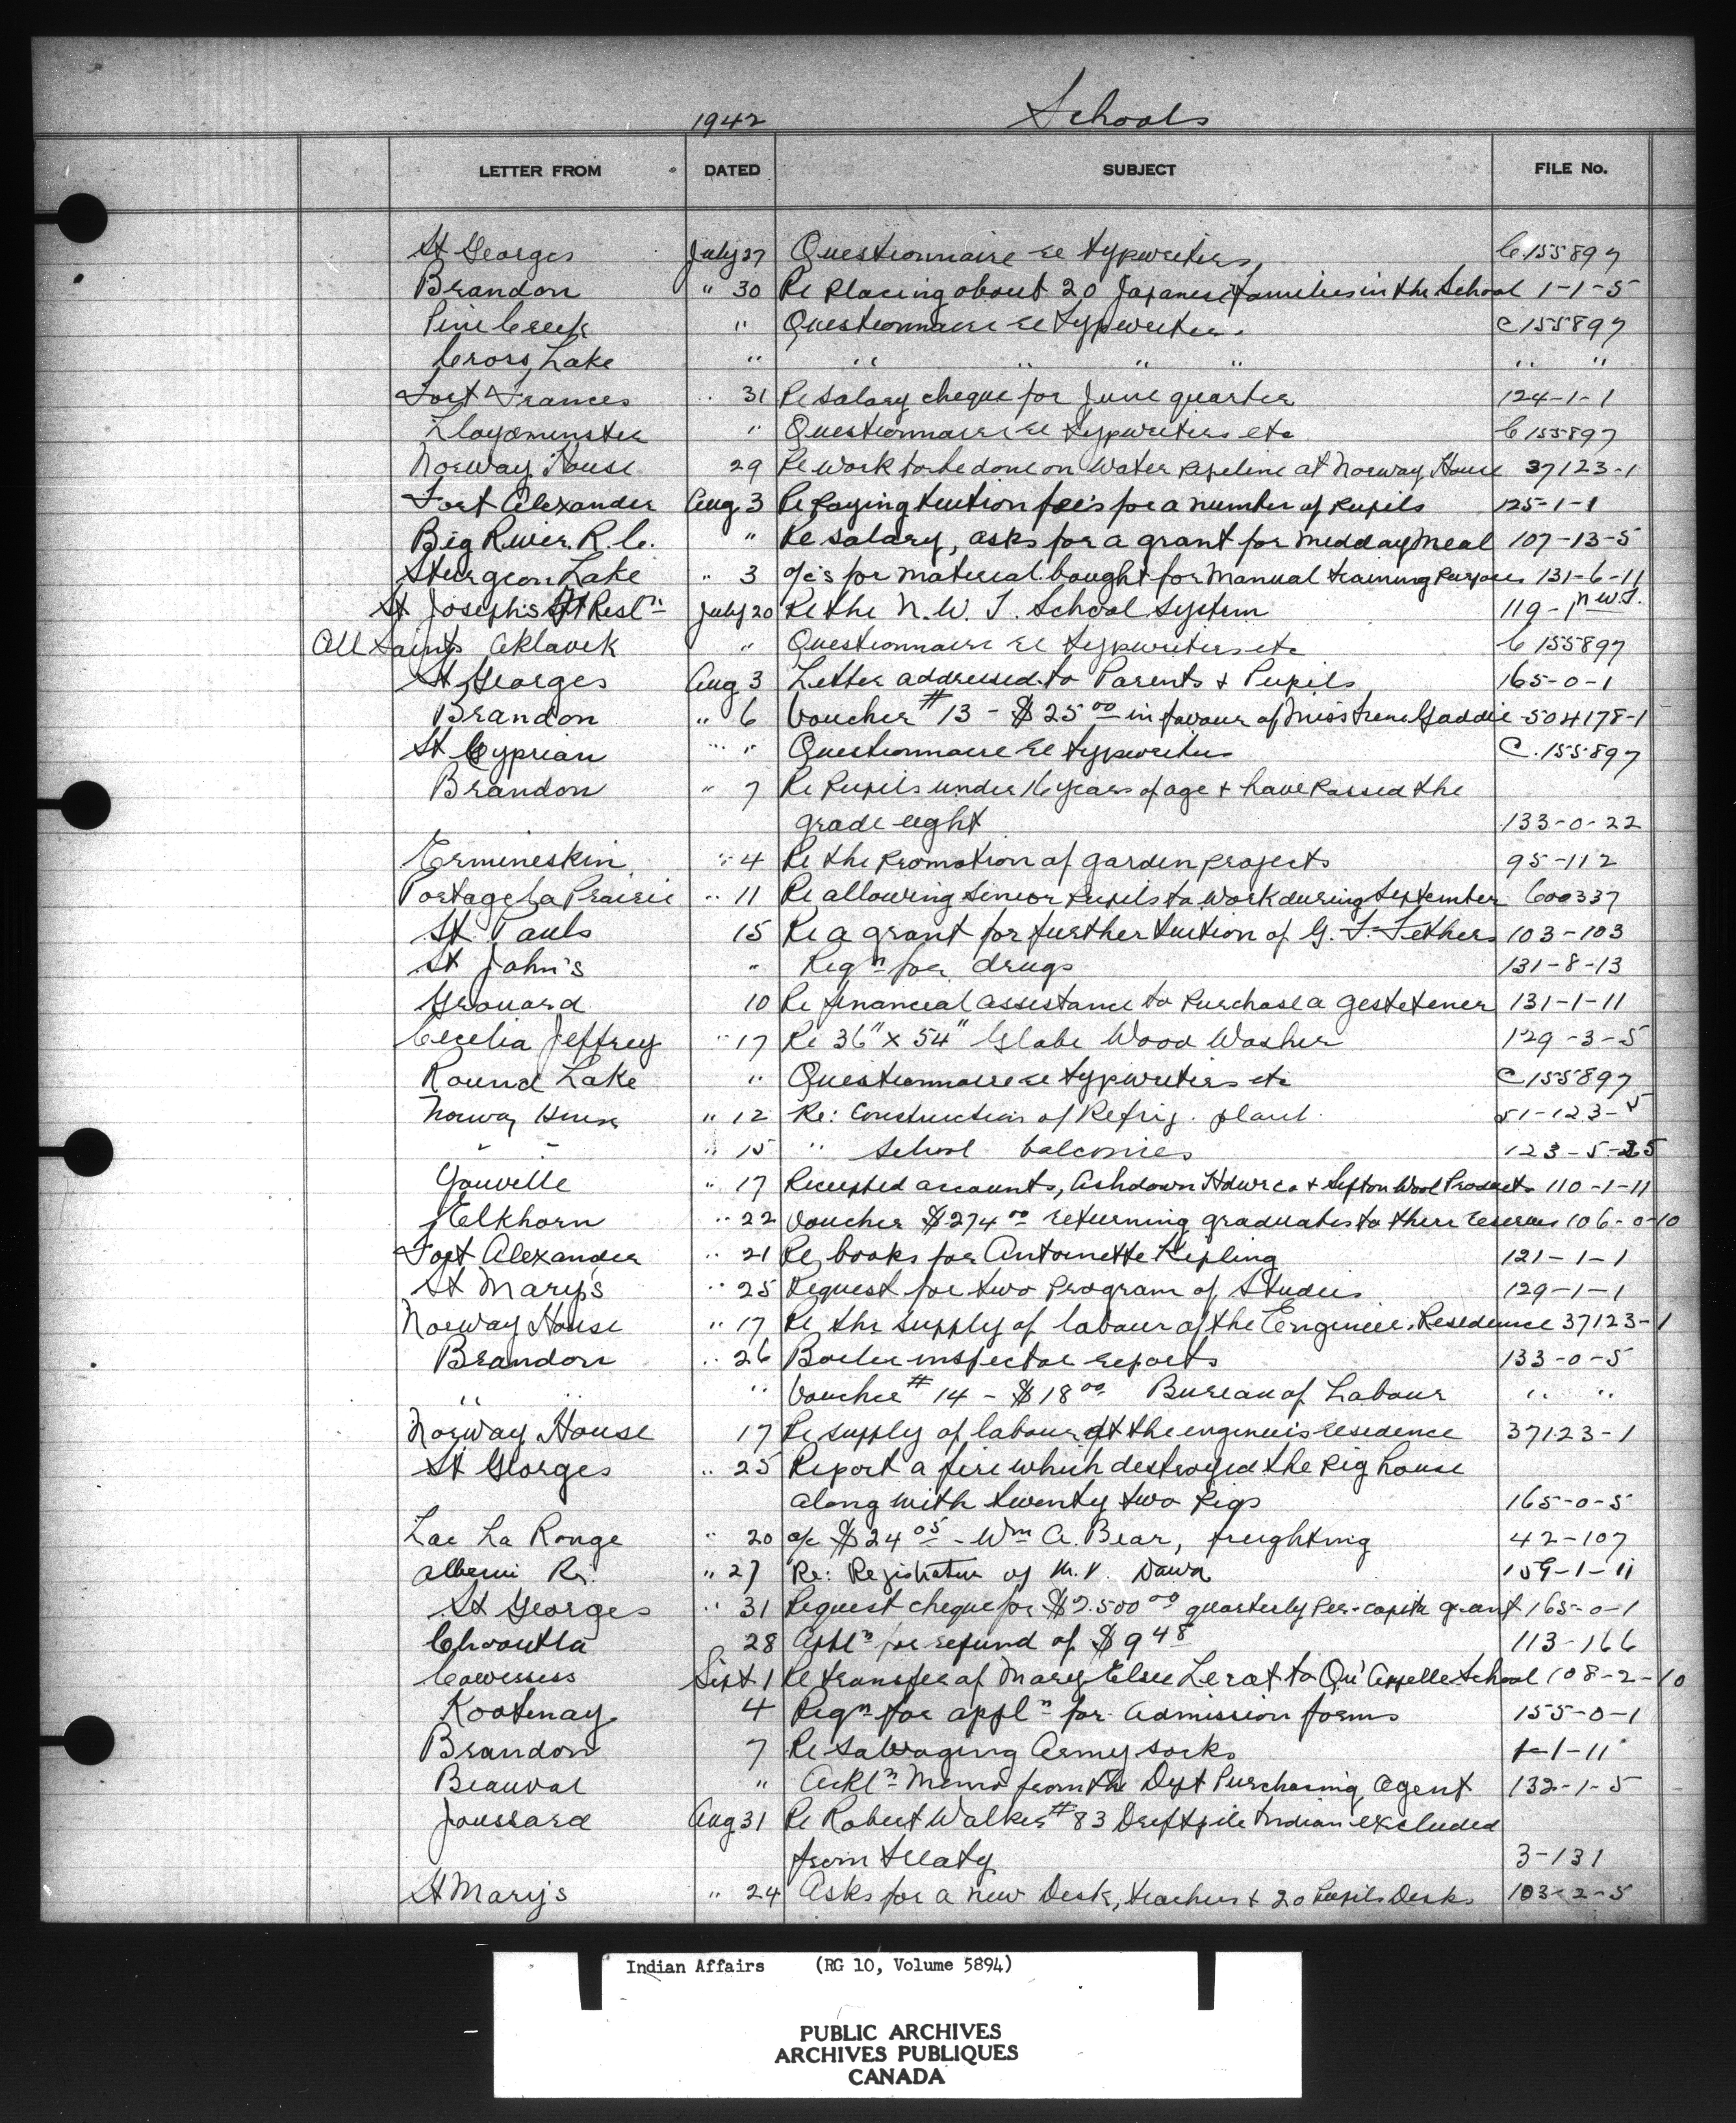 1942 Schools
LETTER FROM DATED SUBJECT FILE No.
St Georges July 27 Questionnaire re typewriters C155897
Brandon " 30 Re placing about 20 Japanese families in the School 1-1-5
Pine Creek " Questionnaire re typewriters C155897
Cross Lake " " " " " " "
Fort Frances " 31 Re salary cheque for June quarter 124-1-1
Lloydminster " Questionnaire re typewriters etc C155897
Norway House 29 Re work to be done on water pipeline at Norway House 37123-1
Fort Alexander Aug 3 Re paying tuition fees for a number of pupils 125-1-1
Big River R.C. " Re salary, asks for a grant for midday meal 107-13-5
Sturgeon Lake " 3 a/c's for material bought for manual training purposes 131-6-11
St Joseph's Ft Resln July 20 Re the N.W.T. School System 119-1 N.W.T.
All Saints Aklavik " Questionnaire re typewriters etc C155897
St Georges Aug 3 Letter addressed to Parents & Pupils 165-0-1
Brandon " 6 Voucher #13 - $25 00 in favour of Miss Irene Gaddie 504178-1
St Cyprian " " Questionnaire re typewriters C.155897
Brandon " 7 Re Pupils under 16 years of age & have passed the
grade eight 133-0-22
Ermineskin " 4 Re the promotion of garden projects 95-112
Portage La Prairie " 11 Re allowing senior pupils to work during September 600337
St Pauls 15 Re a grant for further tuition of G. F. 103-103
St John's " Reqn for drugs 131-8-13
Grouard 10 Re financial assistance to purchase a gestetener 131-1-11
Cecelia Jeffrey " 17 Re 36" x 54" Globe Wood Washer 129-3-5
Round Lake " Questionnaire re typewriters etc C155897
Norway House " 12 Re: Construction of Refrig. plant. 51-123-5
" " " 15 " School balconies 123-5-25
Youville " 17 Receipted accounts, Ashdown Hdwr co. & Sifton Wool Products 110-1-11
Elkhorn " 22 Voucher $274 00 returning graduates to their reserves 106-0-10
Fort Alexander " 21 Re books for Antoinette Kipling 121-1-1
St Mary's " 25 Request for two Program of Studies 129-1-1
Norway House " 17 Re the supply of labour of the Engineer's Residence 37123-1
Brandon " 26 Boiler inspector reports 133-0-5
" " " Voucher #14 - $18 00 Bureau of Labour " "
Norway House 17 Re supply of labour at the engineer's residence 37123-1
St Georges " 25 Report a fire which destroyed the pig house
along with twenty two pigs 165-0-5
Lac La Ronge " 20 a/c $24 05 - Wm A. Bear, freighting 42-107
Alberni Rs. " 27 Re: Registration of M.V. 159-1-11
St Georges " 31 Request cheque for $2.500 00 quarterly per-capita grant 165-0-1
Chooutla 28 Appln for refund of $9 48 113-166
Cowessess Sept 1 Re transfer of Mary Elsie Lerat to Qu'Appelle School 108-2-10
Kootenay 4 Reqn for appln for admission forms 155-0-1
Brandon 7 Re salvaging Army socks 1-1-11
Beauval " Ackln Memo from the Dept Purchasing Agent 132-1-5
Joussard Aug 31 Re Robert Walker #83 Driftpile Indian excluded
from treaty 3-131
St Mary's " 24 Asks for a new Desk, teachers & 20 Pupils Desks 103-2-5
Indian Affairs (RG 10, Volume 5894)
PUBLIC ARCHIVES
ARCHIVES PUBLIQUES
CANADA